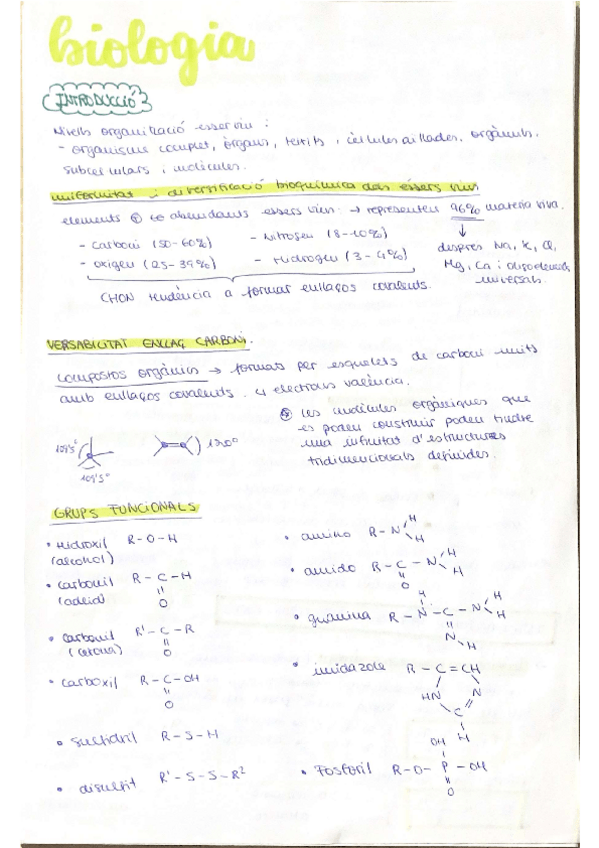 biologia
INTRODUCCIÓ
Nivells organització esser viu:
- organisme complet, òrgans, teixits i cèl·lules aïllades, orgànuls.
subcel·lulars i molècules.
uniformitat i diversificació bioquímica dels éssers vius
elements abundants essers vius: → representen 96% matèria viva.
- Carboni (50-60%)
- Nitrogen (8-10%)
- oxigen (25-39%)
- Hidrogen (3-4%)
↓
després Na, K, Cl,
Mg, Ca i oligoelements
universals.
CHON tendència a formar enllaços covalents.
VERSABILITAT ENLLAÇ CARBONI.
compostos orgànics → formats per esquelets de carboni units
amb enllaços covalents. 4 electrons valència.
les molècules orgàniques que
es poden construir poden tindre
una infinitat d'estructures
tridimencionals definides.
109'5°
109'5°
120°
GRUPS FUNCIONALS
• Hidroxil R-O-H
(alcohol)
• carbonil R-C-H
(aldeid) O
• carbonil R'-C-R
(cetona) O
• carboxil R-C-OH
O
• sulfhidril R-S-H
• disulfit R'-S-S-R²
• amino R-N H H
• amido R-C-N H H
O
• guanina R-N-C-N H H
H N H
• imidazole R-C=CH
HN N
C
H
• Fosforil R-O-P-OH
OH
O